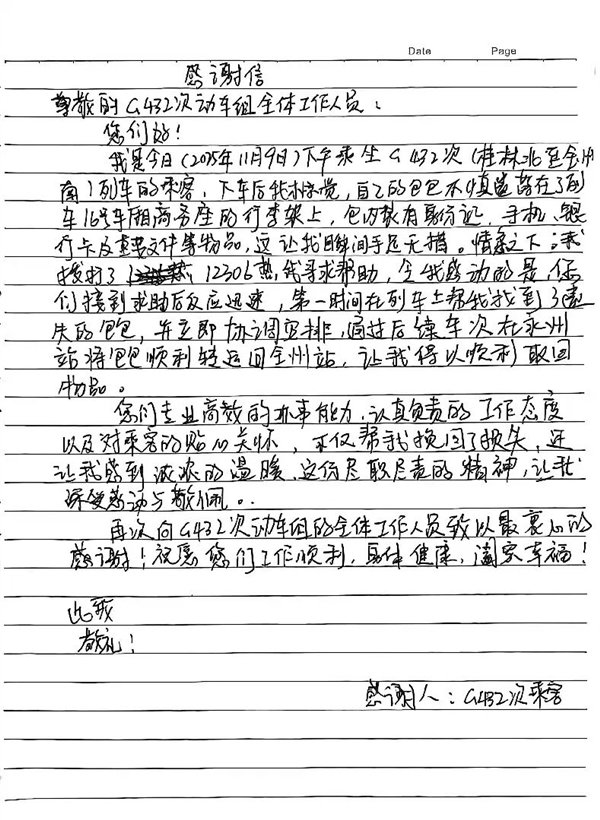 Date Page
感谢信
尊敬的G432次动车组全体工作人员：
您们好！
我是今日(2025年11月9日)下午乘坐G432次(桂林北至全州
南)列车的乘客，下车后我才惊觉，自己的包包不慎遗落在了列
车16号车厢商务座的行李架上，包内装有身份证、手机、银
行卡及重要文件等物品，这让我瞬间手足无措。情急之下，我
拨打了 12306热线寻求帮助，令我感动的是你
们接到求助后反应迅速，第一时间在列车上帮我找到了遗
失的包包，并立即协调安排，通过后续车次在永州
站将包包顺利转运回全州站，让我得以顺利取回
物品。
您们专业高效的办事能力、认真负责的工作态度
以及对乘客的贴心关怀，不仅帮我挽回了损失，还
让我感到浓浓的温暖，这份尽职尽责的精神，让我
深受感动与敬佩。
再次向G432次动车组的全体工作人员致以最衷心的
感谢！祝愿您们工作顺利，身体健康，阖家幸福！
此致
敬礼！
感谢人：G432次乘客